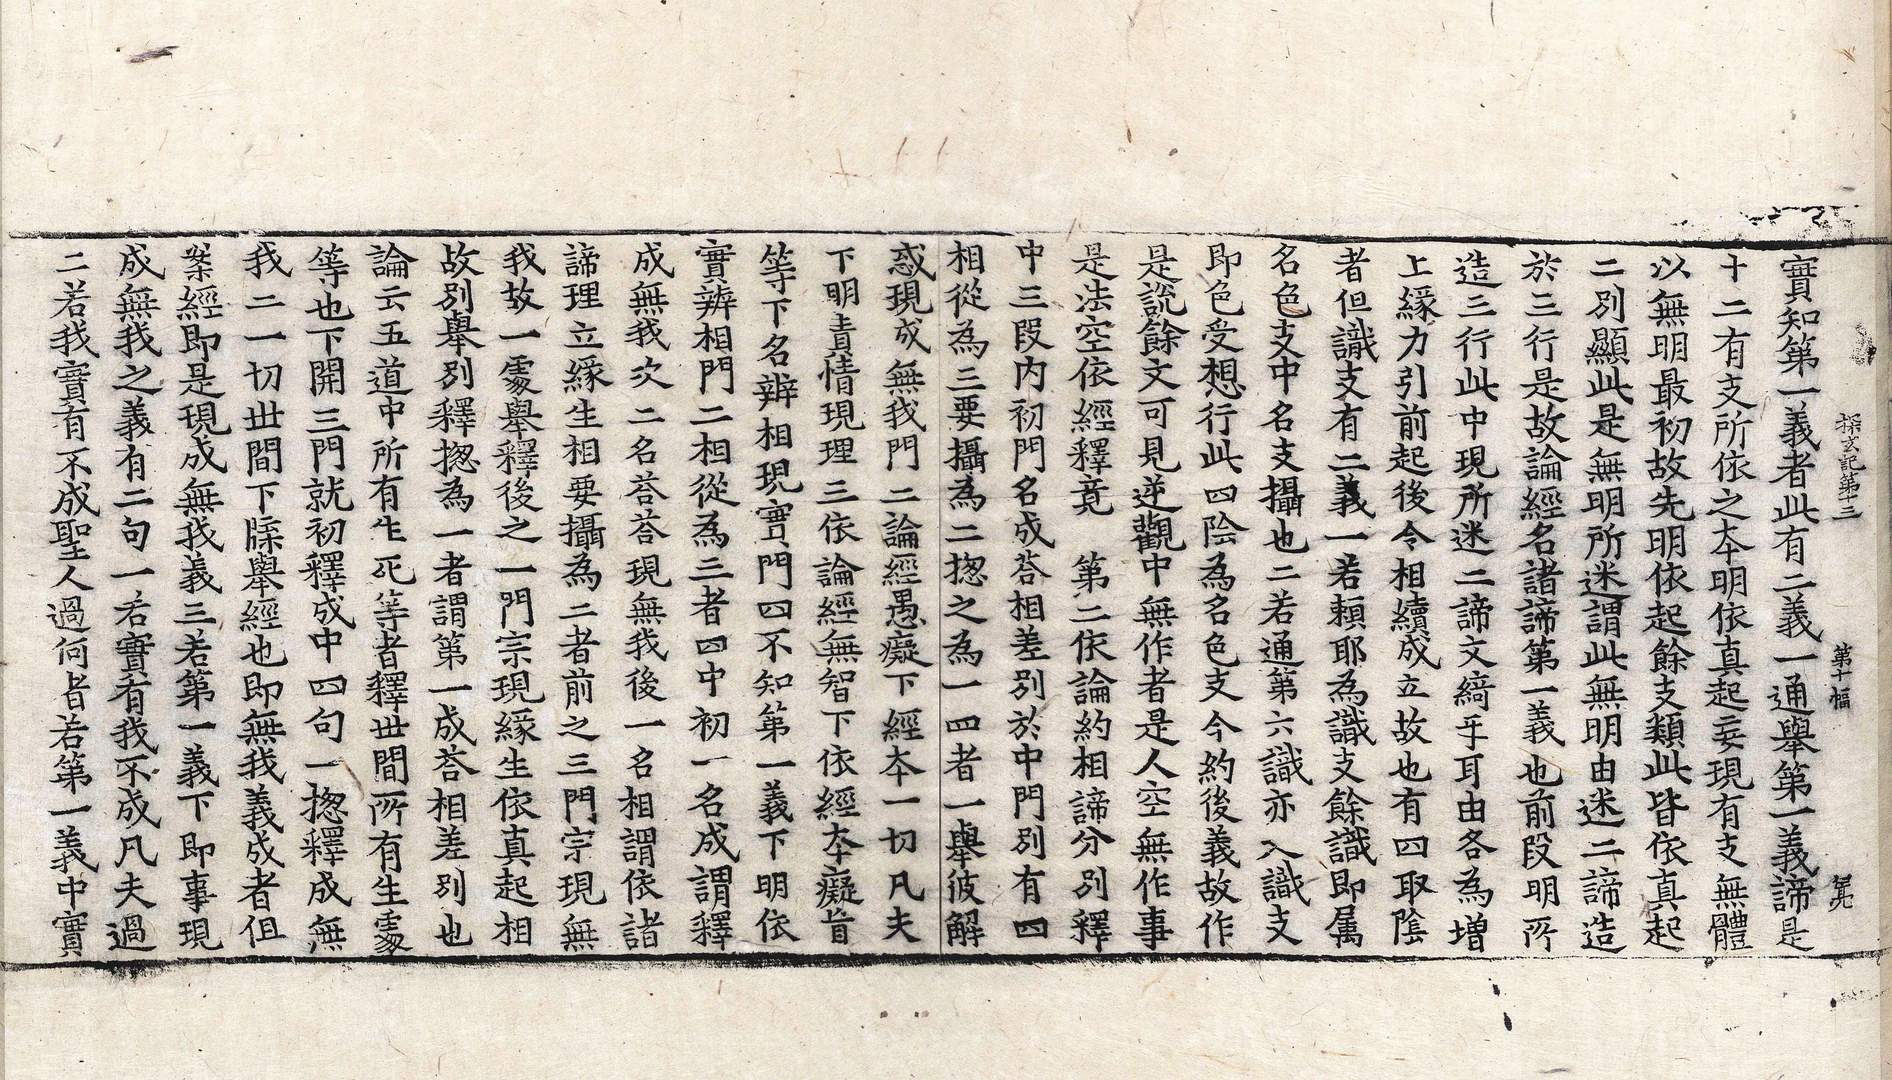 探玄記第十三　第十幅
實知第一義者此有二義一通舉第一義諦是
十二有支所依之本明依真起妄現有支無體
以無明最初故先明依起餘支類此皆依真起
二別顯此是無明所迷謂此無明由迷二諦造
於三行是故論經名諸諦第一義也前段明所
造三行此中現所迷二諦文綺乎耳由各為增
上緣力引前起後令相續成立故也有四取陰
者但識支有二義一若賴耶為識支餘識即属
名色支中名支攝也二若通第六識亦入識支
即色受想行此四陰為名色支今約後義故作
是說餘文可見逆觀中無作者是人空無作事
是法空依經釋竟　第二依論約相諦分別釋
中三段内初門名成荅相差別於中門別有四
相從為三要攝為二揔之為一四者一舉彼解
惑現成無我門二論經愚癡下經本一切凡夫
下明責情現理三依論經無智下依經本癡盲
等下名辨相現實門四不知第一義下明依
實辨相門二相從為三者四中初一名成謂釋
成無我次二名荅荅現無我後一名相謂依諸
諦理立緣生相要攝為二者前之三門宗現無
我故一處舉釋後之一門宗現緣生依真起相
故別舉別釋揔為一者謂第一成荅相差別也
論云五道中所有生死等者釋世間所有生處
等也下開三門就初釋成中四句一揔釋成無
我二一切世間下牒舉經也即無我義成者但
案經即是現成無我義三若第一義下即事現
成無我之義有二句一若實有我不成凡夫過
二若我實有不成聖人過何者若第一義中實